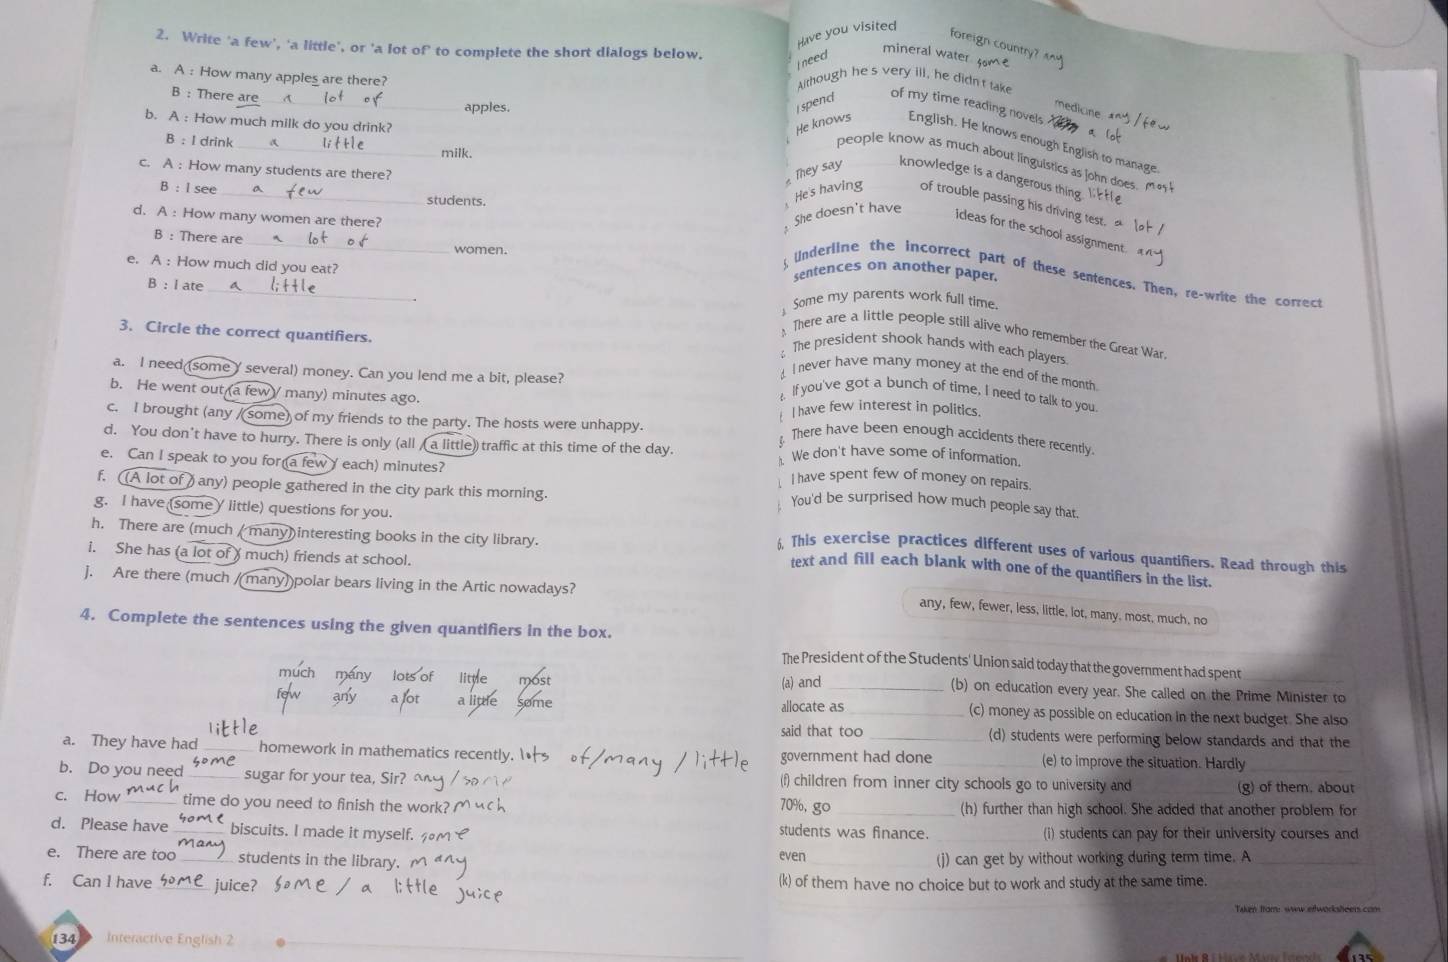 2. Write 'a few', 'a little', or 'a lot of' to complete the short dialogs below.
a. A : How many apples are there?
B : There are a lot of apples.
b. A : How much milk do you drink?
B : I drink a little milk.
c. A : How many students are there?
B : I see a few students.
d. A : How many women are there?
B : There are a lot of women.
e. A : How much did you eat?
B : I ate a little.
3. Circle the correct quantifiers.
a. I need (some / several) money. Can you lend me a bit, please?
b. He went out (a few / many) minutes ago.
c. I brought (any / some) of my friends to the party. The hosts were unhappy.
d. You don't have to hurry. There is only (all / a little) traffic at this time of the day.
e. Can I speak to you for (a few / each) minutes?
f. (A lot of / any) people gathered in the city park this morning.
g. I have (some / little) questions for you.
h. There are (much / many) interesting books in the city library.
i. She has (a lot of / much) friends at school.
j. Are there (much / many) polar bears living in the Artic nowadays?
4. Complete the sentences using the given quantifiers in the box.
much many lots of little most
few any a lot a little some
a. They have had little homework in mathematics recently. lots of/many / little
b. Do you need some sugar for your tea, Sir? any / some
c. How much time do you need to finish the work? much
d. Please have some biscuits. I made it myself. some
e. There are too many students in the library. many
f. Can I have some juice? some / a little juice
134 Interactive English 2
Have you visited foreign country? any
I need mineral water. some
Although he's very ill, he didn't take medicine. any / few
I spend of my time reading novels. a lot
He knows English. He knows enough English to manage.
people know as much about linguistics as John does. most
They say knowledge is a dangerous thing. little
He's having of trouble passing his driving test. a lot /
She doesn't have ideas for the school assignment. any
Underline the incorrect part of these sentences. Then, re-write the correct
sentences on another paper.
Some my parents work full time.
There are a little people still alive who remember the Great War.
c. The president shook hands with each players.
d. I never have many money at the end of the month.
e. If you've got a bunch of time, I need to talk to you.
f. I have few interest in politics.
g. There have been enough accidents there recently.
h. We don't have some of information.
I have spent few of money on repairs.
You'd be surprised how much people say that.
6. This exercise practices different uses of various quantifiers. Read through this
text and fill each blank with one of the quantifiers in the list.
any, few, fewer, less, little, lot, many, most, much, no
The President of the Students' Union said today that the government had spent
(a) and (b) on education every year. She called on the Prime Minister to
allocate as (c) money as possible on education in the next budget. She also
said that too (d) students were performing below standards and that the
government had done (e) to improve the situation. Hardly
(f) children from inner city schools go to university and (g) of them, about
70%, go (h) further than high school. She added that another problem for
students was finance. (i) students can pay for their university courses and
even (j) can get by without working during term time. A
(k) of them have no choice but to work and study at the same time.
Taken from:
135